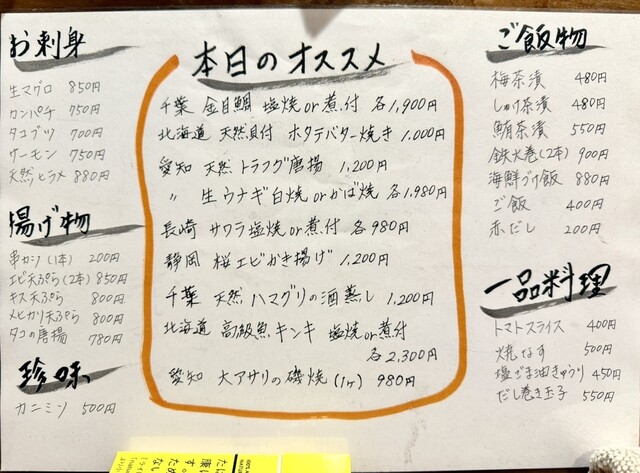 お刺身
生マグロ 850円
カンパチ 750円
タコブツ 700円
サーモン 750円
天然ヒラメ 880円
揚げ物
串カツ(1本) 200円
エビ天ぷら(2本) 850円
キス天ぷら 800円
メヒカリ天ぷら 800円
タコの唐揚 780円
珍味
カニミソ 500円
本日のオススメ
千葉 金目鯛 塩焼or煮付 各1,900円
北海道 天然貝付 ホタテバター焼き 1,000円
愛知 天然トラフグ唐揚 1,200円
〃 生ウナギ白焼orかば焼 各1,980円
長崎 サワラ塩焼or煮付 各980円
静岡 桜エビかき揚げ 1,200円
千葉 天然ハマグリの酒蒸し 1,200円
北海道 高級魚キンキ 塩焼or煮付
各2,300円
愛知 大アサリの磯焼(1ケ) 980円
ご飯物
梅茶漬 480円
しゃけ茶漬 480円
鮪茶漬 550円
鉄火巻(2本) 900円
海鮮づけ飯 880円
ご飯 400円
赤だし 200円
一品料理
トマトスライス 400円
焼なす 500円
塩ごま油きゅうり 450円
だし巻き玉子 550円